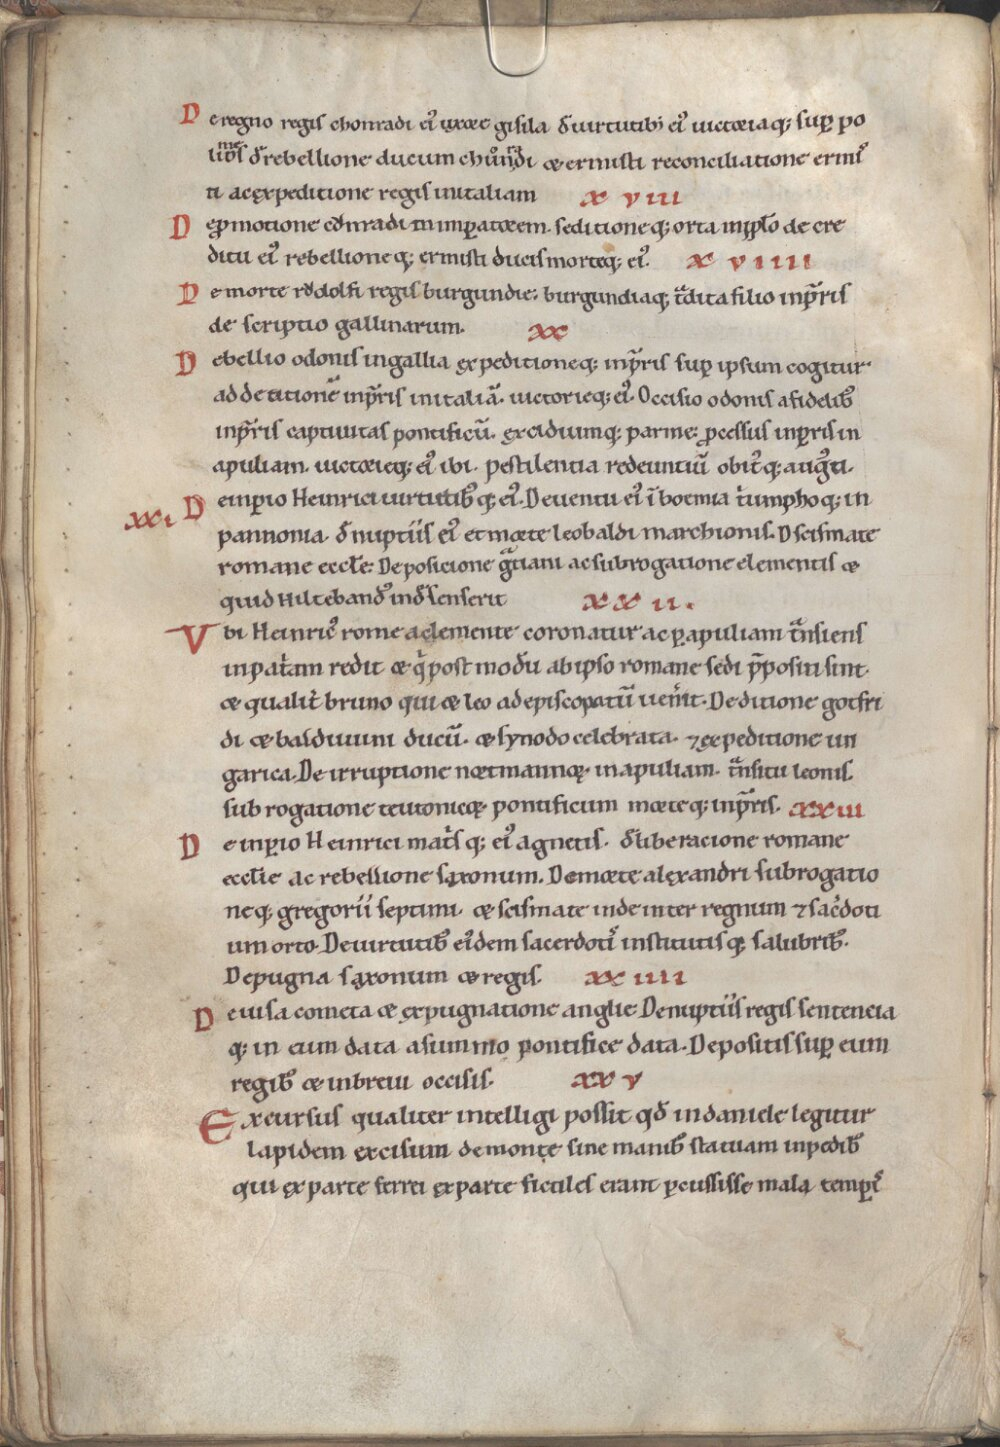 De regno regis chonradi ei' uxore gisila d' uirtutib; ei' uictoria q; sup po
lib's d' rebellione ducum chůnradi & ermisti reconciliatione ermi'
ti ac expeditione regis in italiam xviii
De p motione chonradi in imperatorem. seditione q; orta in pplo de cre
ditu ei' rebellione q; ermisti ducis morte q; ei'. xviiii
De morte rodolfi regis burgundie; burgundia q; t̄dita filio inp̄ris
de scriptio gallinarum. xx
De bellio odonis in gallia expeditione q; inp̄ris sup ipsum cogitur
ad de titionē inp̄ris in italiā. uictorie q; ei'. Occisio odonis a fidelib'
inp̄ris captiuitas pontificū. excidium q; parme. pcessus inp̄ris in
apuliam. uictorie q; ei' ibi. pestilentia redeuntiū obit' q; aug'ti.
xxi De inperio Heinrici uirtutib' q; ei'. De uentu ei' ī boemia t'umpho q; in
pannonia. d' nuptiis ei' et morte leobaldi marchionis. D scismate
romane eccle. De posicione g̃tiani ac subrogatione clementis &
quid Hilteband' ind' senserit xxii.
Vbi Heinric' rome a clemente coronatur ac p apuliam t̄nsiens
in pat'am redit & q' post modū ab ipso romane sedi p̄positi sint.
& qualit' bruno qui & leo ad episcopatū uen'it. De ditione gotfri
di & balduuini ducū. & synodo celebrata. ⁊ expeditione un
garica. De irruptione nortmannorꝝ in apuliam. t̄nsitu leonis.
sub rogatione teutonicorꝝ pontificum morte q; inp̄ris. xxiii
De inperio Heinrici mat's q; ei' agnetis. d' liberacione romane
ecclie ac rebellione saxonum. De morte alexandri subrogatio
ne q; gregorii septimi. & scismate inde inter regnum ⁊ sac'doti
um orto. De uirtutib' ei'dem sacerdot' institutis q; salubrib'.
De pugna saxonum & regis. xxiiii
De uisa cometa & expugnatione anglie De nuptiis regis sentencia
q; in eum data a summo pontifice data. De positis sup eum
regib' & in breui occisis. xxv
Excursus qualiter intelligi possit qd' in daniele legitur
lapidem excisum de monte sine manib' statuam in pedib'
qui ex parte ferrei ex parte fictiles erant pcussisse mala tempor'